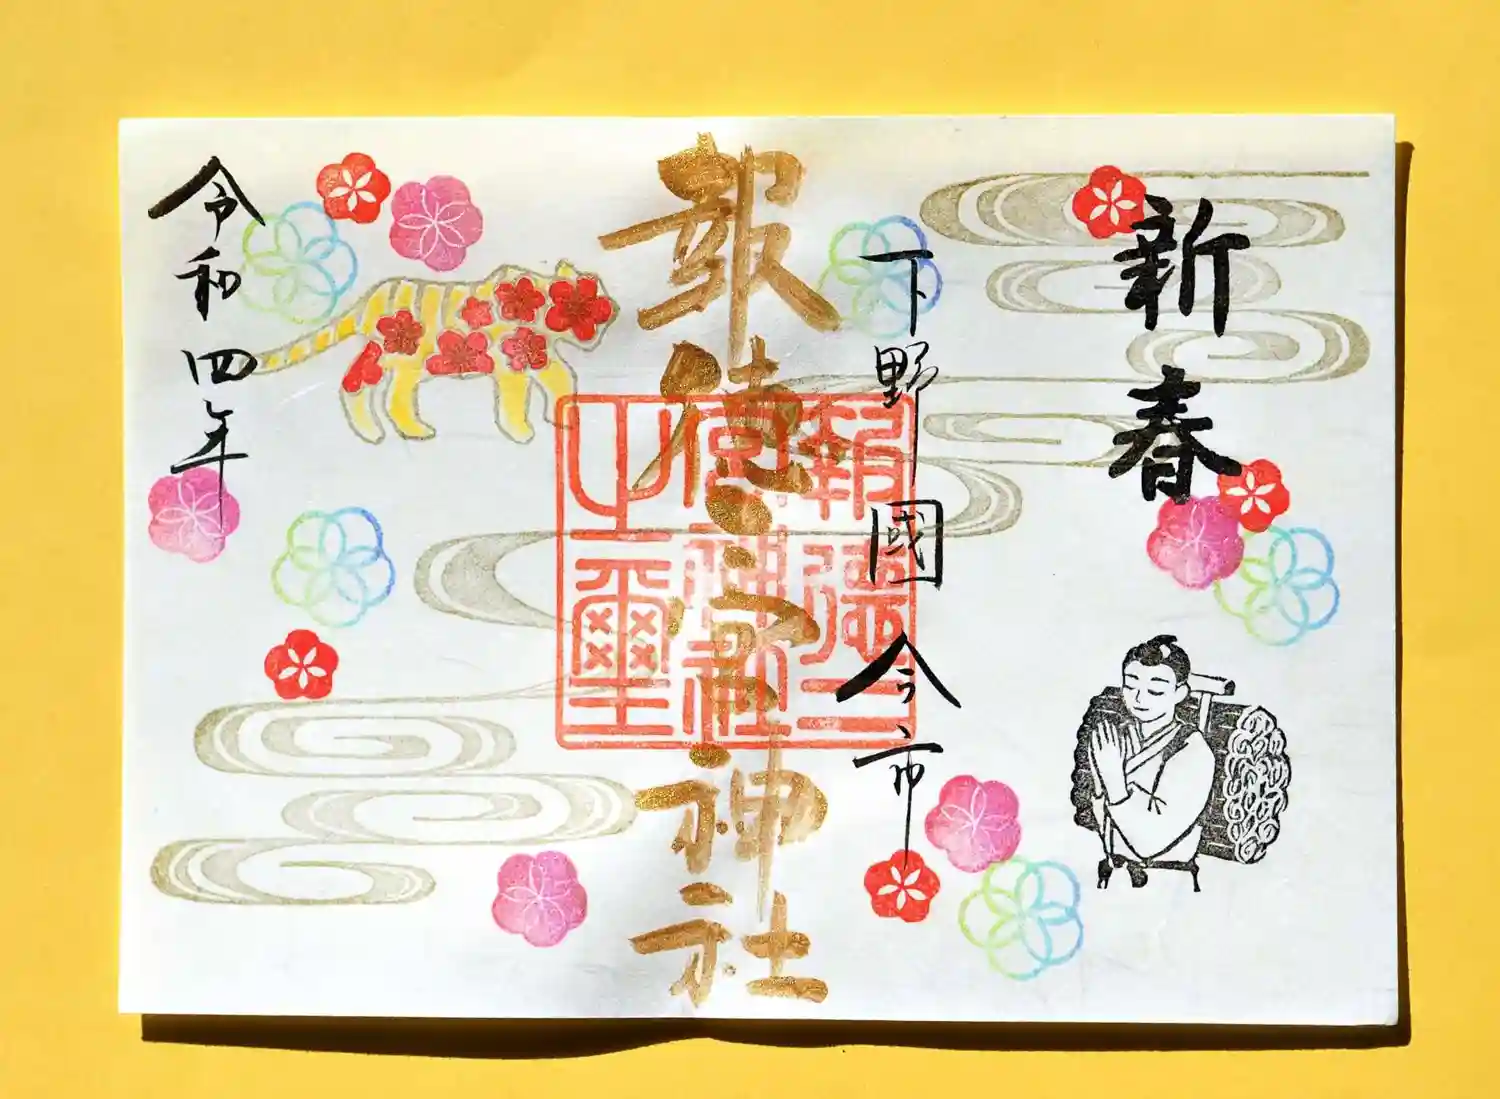 新春
下野國今市
報徳二宮神社
報徳二
宮神社
之璽
令和四年